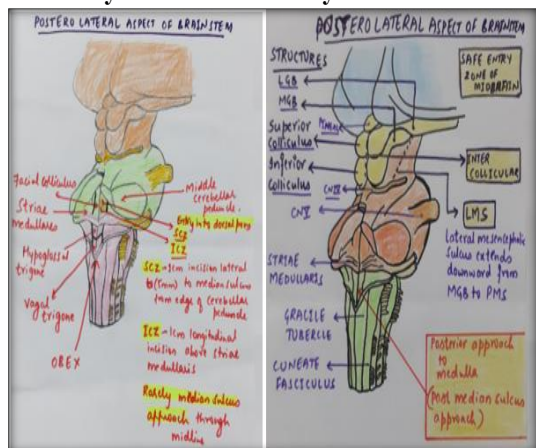 POSTERO LATERAL ASPECT OF BRAINSTEM
Facial colliculus
Striae
medullaris
Hypoglossal
trigone
Vagal
trigone
OBEX
Middle
cerebellar
peduncle
Entry into dorsal pons
SCZ
ICZ
SCZ - 1cm incision lateral
to (5mm) to median sulcus
from edge of cerebellar
peduncle
ICZ - 1cm longitudinal
incision above striae
medullaris
Rarely median sulcus
approach through
midline
POSTERO LATERAL ASPECT OF BRAINSTEM
STRUCTURES
LGB
MGB
Superior
colliculus
Inferior
colliculus
CN IV
CN V
STRIAE
MEDULLARIS
GRACILE
TUBERCLE
CUNEATE
FASCICULUS
SAFE ENTRY
ZONE OF
MIDBRAIN
INTER
COLLICULAR
LMS
Lateral mesencephalic
sulcus extends
downward from
MGB to PMS
Posterior approach
to
medulla
(Post median sulcus
approach)